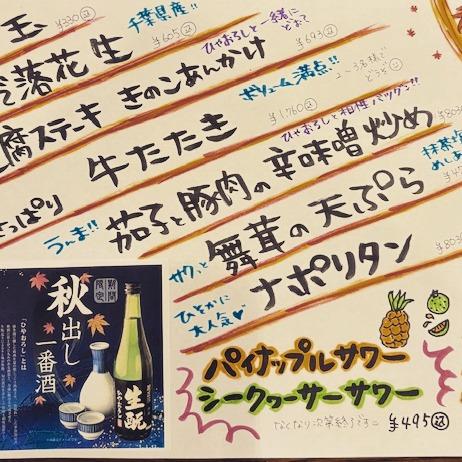 玉 ¥330込
千葉県産!!
落花生 ¥605込
ひやおろしと一緒に
どお?
腐ステーキ きのこあんかけ ¥693込
ボリューム満点!!
2〜3名様で
どうぞ
牛たたき ¥1,760込
ひやおろしと相性バツグン!!
さっぱり
うんま!! 茄子と豚肉の辛味噌炒め
サクッと 舞茸の天ぷら
抹茶塩
ひそかに
大人気 ナポリタン
パイナップルサワー
シークヮーサーサワー
なくなり次第終了です
¥495込
期間
限定
秋出し
一番酒
「ひやおろし」とは
生酛